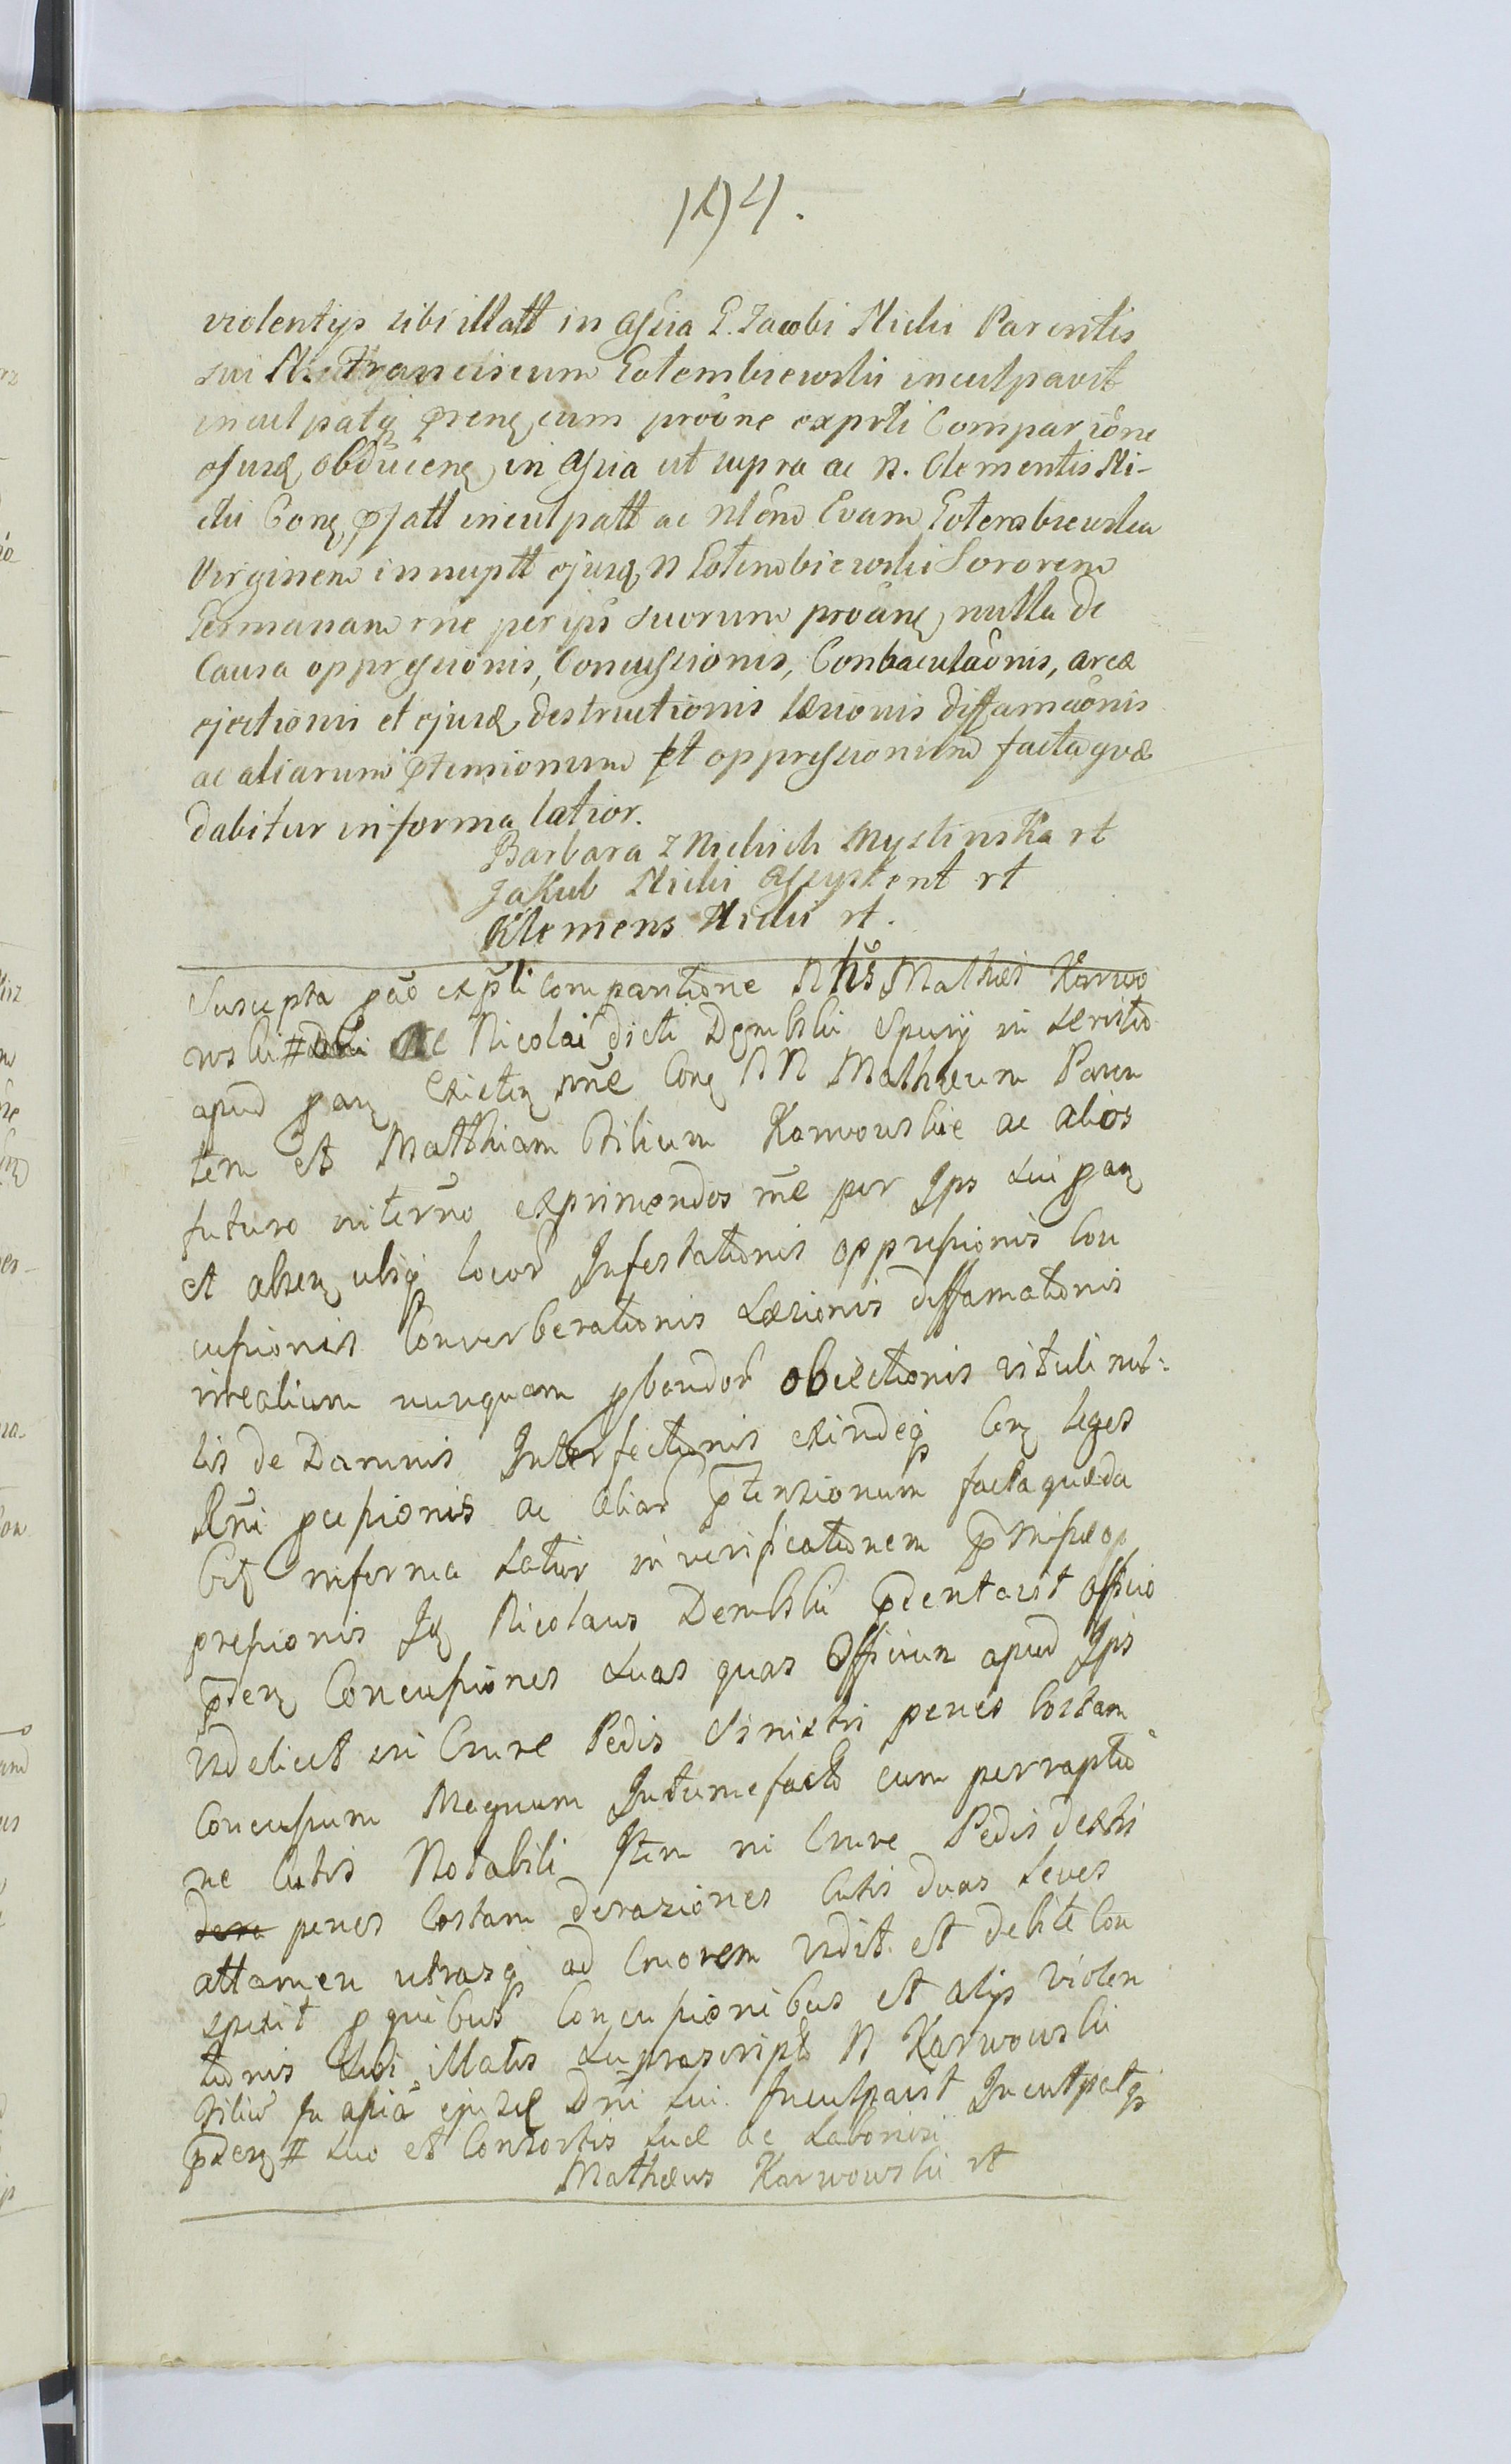 194.
violentijs sibi illatt in assia G. Jacobi Nicki Parentis
sui Franciscum Gołembiewski inculpavit
inculpatq prenq cum proone exprti Compar ione
ejusq obducenq in assia ut supra ac N. Clementis Ni-
cki Conq pfatt inculpatt ac Nlem Evam Gołembiewska
Virginem innuptt ejusq N Gołembiewski Sororem
Germanam rne per ips suorum proanq nulla de
Causa oppressionis, Concussionis, Conbaculaonis, arcæ
ejectionis et ejusq destructionis læsionis diffamaonis
ac aliarum ptensionum et oppressionum facta quæ
dabitur in forma latior.
Barbara z Nickich Myslinska rt
Jakub Nicki assystent rt
Klemens Nicki rt.
Suscepta pao exprti comparitione Nlis Mathæi Karwo
wski # ac Nicolai dicti Dembski Spurij in servitio
apud panq Existenq rne Conq NN Mathæum Paren
tem et Matthiam Filium Karwowskie ac alios
futuro in termo exprimendos rne per Ips sui panq
et absenq ubiq locor Infestationis oppressionis Con
cussionis Converberationis Læsionis diffamationis
irrealium nunquam pbandor obiectionis vituli nul-
lis de Damnis Interfectionis exindeq Conq leges
Rni pcussionis ac aliar ptensionum facta quæ da
bitq in forma Latior in verificationem pmissæ op
pressionis Iq Nicolaus Dembski pdentavit officio
pdenq Concussiones suas quas Officium apud Ips
Videlicet in Crure Pedis Sinistri penes Costam
Concussum Magnum Intumefactu cum perruptio
ne Cutis Notabili Item in Crure Pedis dextri
penes Costam derasiones Cutis duas Leves
attamen utrasq ad Cruorem Vidit et debite Con
spexit p quibus Concussionibus et alijs Violen
tionis sibi illatis suprascript N Karwowski
Filiu in assia ejusd Dni sui Inculpavit Inculpatq
pdenq # suo et Consortis suæ ac Laboriosi
Mathæus Karwowski rt